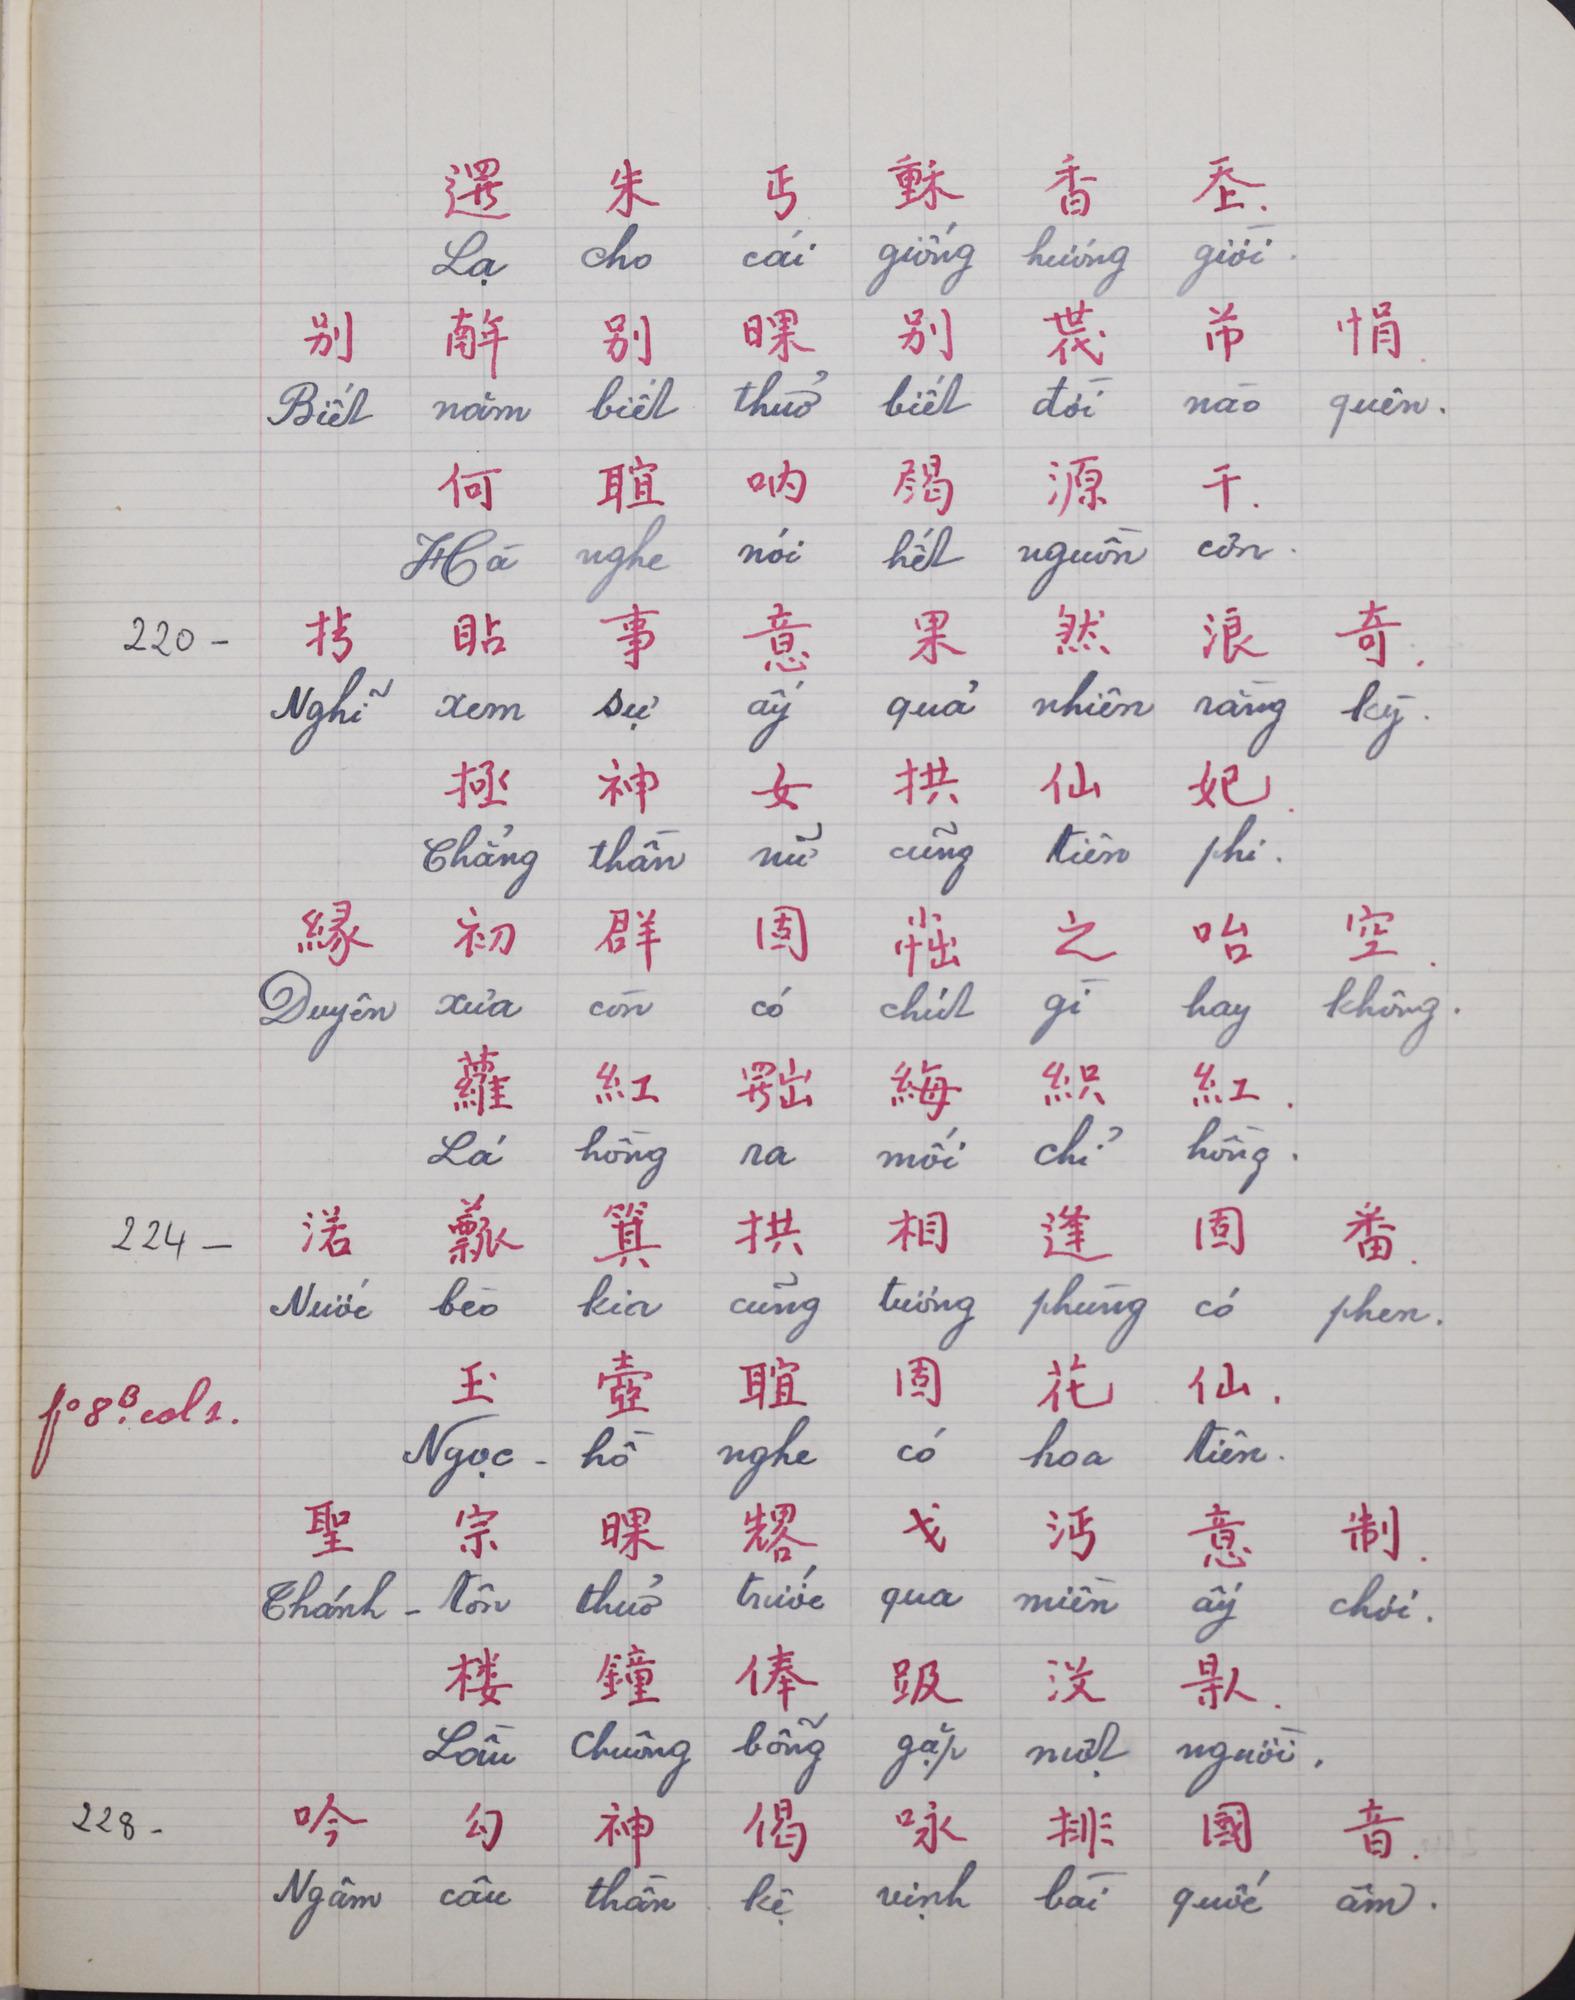 遻 朱 丐 𥞖 香 𡗶.
Lạ cho cái giống hương giời.
别 𢆥 别 𣇞 别 𠁀 芇 悁.
Biết năm biết thuở biết đời nào quên.
何 䀏 吶 歇 源 干.
Hà nghe nói hết nguồn cơn.
220 - 𢪀 䀡 事 意 果 然 浪 奇.
Nghĩ xem sự ấy quả nhiên rằng kỳ.
拯 神 女 拱 仙 妃.
Chẳng thần nữ cũng tiên phi.
緣 初 群 固 之 咍 空.
Duyên xưa còn có chút gì hay không.
蘿 紅 𦋦 䋦 織 紅.
Lá hồng ra mối chỉ hồng.
224 - 渃 箕 拱 相 逢 固 番.
Nước bèo kia cũng tương phùng có phen.
fo 8B. col 1. 玉 壺 䀏 固 花 仙.
Ngọc - hồ nghe có hoa tiên.
聖 宗 𣇞 𠠩 戈 沔 意 制.
Thánh - tôn thuở trước qua miền ấy chơi.
楼 鐘 俸 趿 没 𠊛.
Lầu chuông bỗng gặp một người.
228 - 吟 勾 神 偈 咏 排 國 音.
Ngâm câu thần kệ vịnh bài quốc âm.